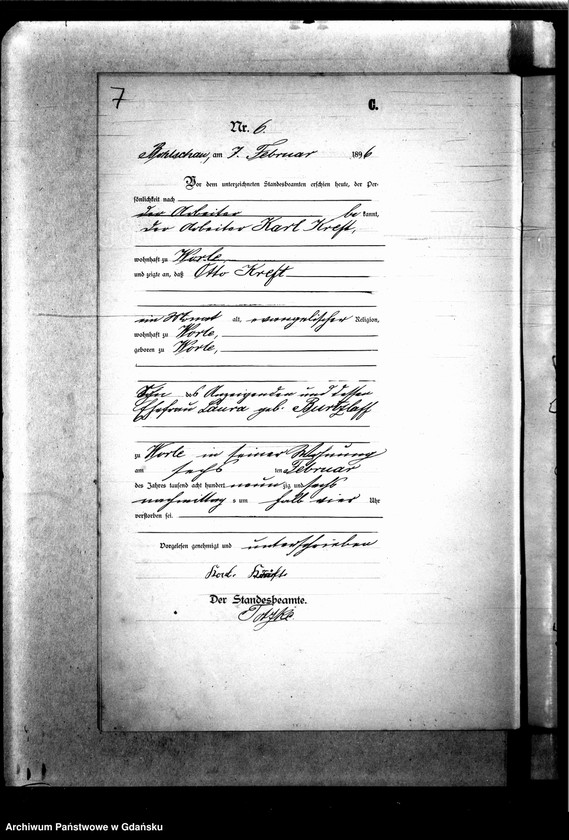 7
C.
Nr. 6.
Bohlschau, am 7. Februar 1896
Vor dem unterzeichneten Standesbeamten erschien heute, der Per-
sönlichkeit nach
der Arbeiter be kannt,
der Arbeiter Karl Kreft,
wohnhaft zu Worle
und zeigte an, daß Otto Kreft
ein Monat alt, evangelischer Religion,
wohnhaft zu Worle,
geboren zu Worle,
Sohn des Anzeigenden und dessen
Ehefrau Laura geb. Burtzlaff
zu Worle in seiner Wohnung
am sechs ten Februar
des Jahres tausend acht hundert neun zig und sechs
nachmittag s um halb vier Uhr
verstorben sei.
Vorgelesen genehmigt und unterschrieben
Karl
Der Standesbeamte.
Archiwum Państwowe w Gdańsku